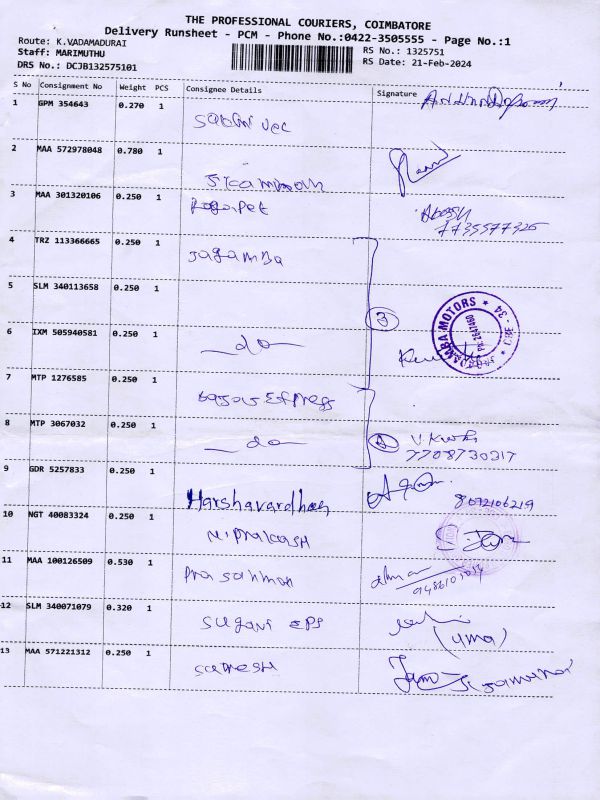 THE PROFESSIONAL COURIERS, COIMBATORE
Delivery Runsheet - PCM - Phone No.:0422-3505555 - Page No.:1
Route: K.VADAMADURAI
Staff: MARIMUTHU
DRS No.: DCJB132575101
RS No.: 1325751
RS Date: 21-Feb-2024
S No Consignment No Weight PCS Consignee Details Signature
1 GPM 354643 0.270 1
2 MAA 572978048 0.780 1
3 MAA 301320106 0.250 1
7735577325
4 TRZ 113366665 0.250 1 Jagamba
5 SLM 340113658 0.250 1
3
JAGADAMBA MOTORS * CBE - 34 *
6 IXM 505940581 0.250 1 do
7 MTP 1276585 0.250 1 Express
8 MTP 3067032 0.250 1 do
7708730217
9 GDR 5257833 0.250 1 Harshavardhan
8072106219
10 NGT 40083324 0.250 1 N. Prakash
11 MAA 100126509 0.530 1
12 SLM 340071079 0.320 1 Sugani EPS
(uma)
13 MAA 571221312 0.250 1 Suresh